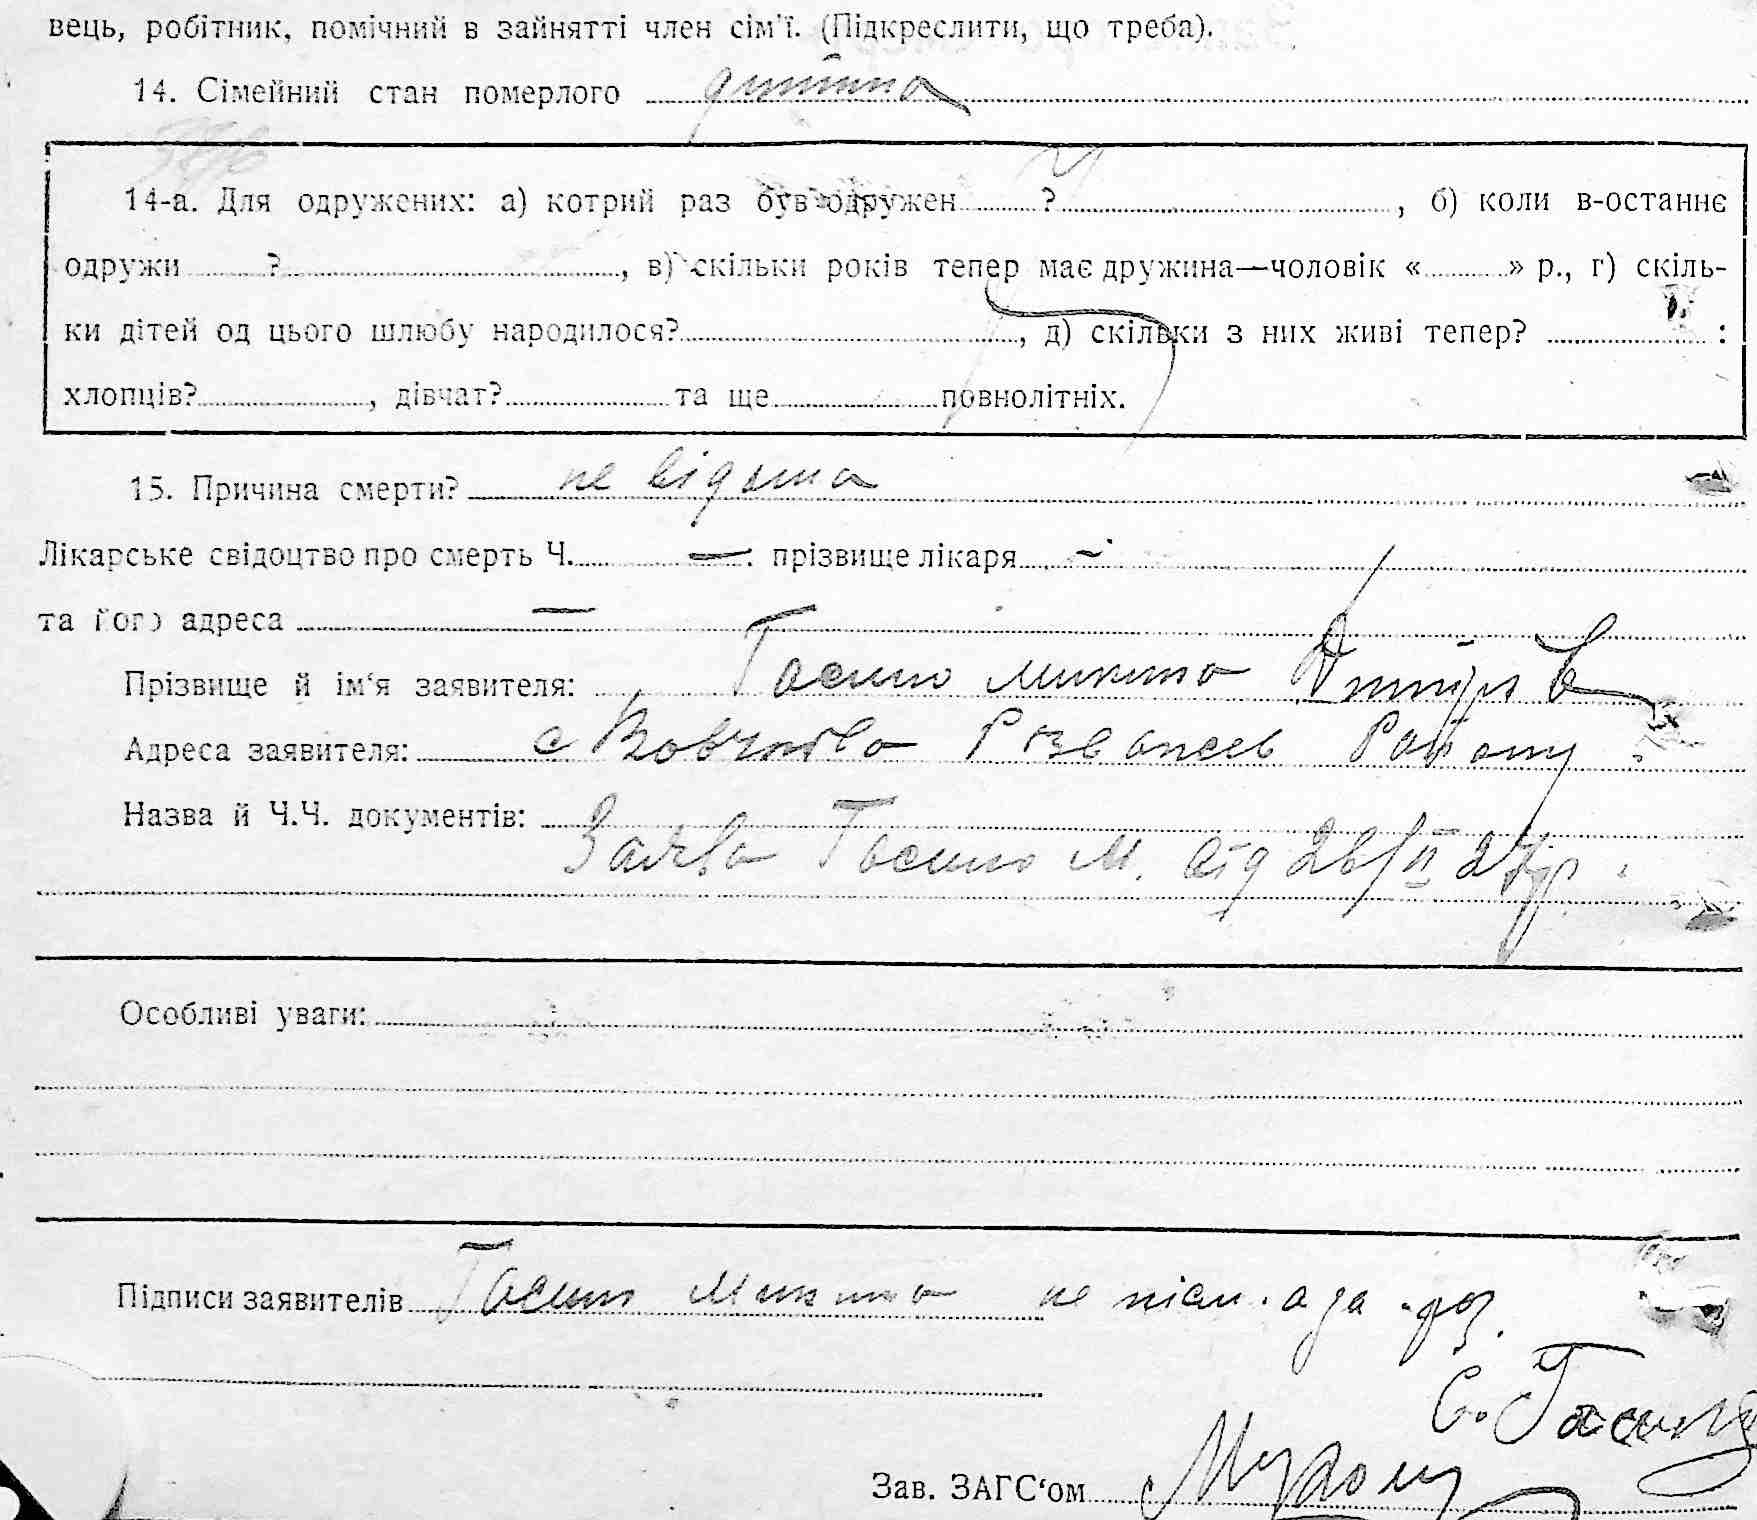 вець, робітник, помічний в зайнятті член сім'ї. (Підкреслити, що треба).
14. Сімейний стан померлого дитина
14-а. Для одружених: а) котрий раз був одружен ? , б) коли в-останнє
одружи ? , в) скільки років тепер має дружина—чоловік « » р., г) скіль-
ки дітей од цього шлюбу народилося? , д) скільки з них живі тепер? :
хлопців? , дівчат? та ще повнолітніх.
15. Причина смерти? не відома
Лікарське свідоцтво про смерть Ч. — прізвище лікаря —
та його адреса —
Прізвище й ім'я заявителя: Гасило Микита Дмитр
Адреса заявителя: с Району
Назва й Ч.Ч. документів:
Заява Гасило М. від 26/II 27р.
Особливі уваги:
Підписи заявителів Гасило Микита не писм. а за
С. Гасило
Зав. ЗАГС'ом